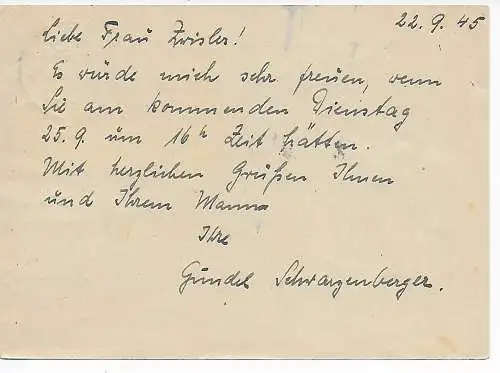 22.9.45
Liebe Frau Zwisler!
Es würde mich sehr freuen, wenn
Sie am kommenden Dienstag
25.9. um 16h Zeit hätten.
Mit herzlichen Grüßen Ihnen
und Ihrem Manne
Ihre
Gundel Schwarzenberger.